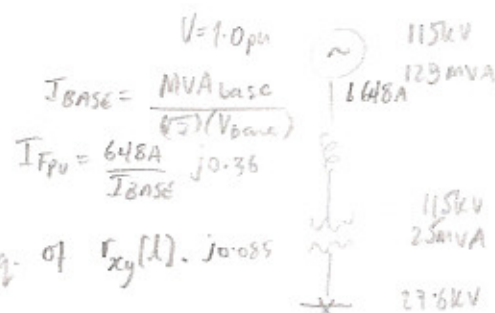 V=1.0pu
~
115kV
129MVA
I_BASE = MVA base / (√3)(V_Base)
648A
I_Fpu = 648A / I_BASE
j0.36
115kV
25MVA
of r_xy[l].
j0.085
27.6kV